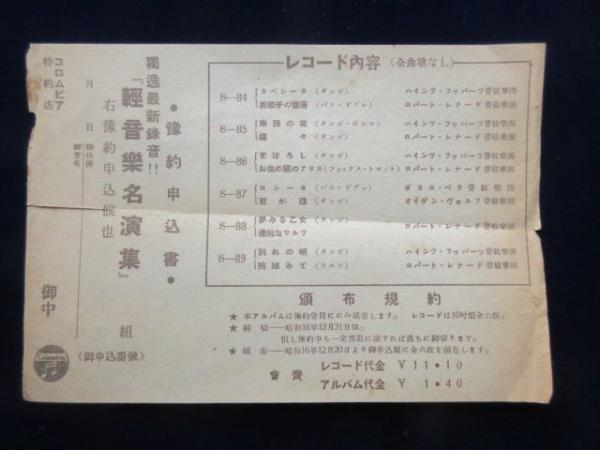 レコード內容 (全曲歌なし)
S—84 カベシータ (タンゴ) ハインツ・フッパーツ管絃樂團
(パソ・ドブレ) ロバート・レナード管絃樂團
S—85 南國の夜 (タンゴ・ボレロ) ハインツ・フッパーツ管絃樂團
(タンゴ) ロバート・レナード管絃樂團
S—86 まぼろし (タンゴ) ハインツ・フッパーツ管絃樂團
お伽の國のアリス (フォックス・トロット) ロバート・レナード管絃樂團
S—87 ロシータ (パソ・ドブレ) ダヨス・ベラ管絃樂團
君が瞳 (タンゴ) オイゲン・ヴォルフ管絃樂團
S—88 夢みる乙女 (タンゴ) ハインツ・フッパーツ管絃樂團
優婉なワルツ ロバート・レナード管絃樂團
S—89 別れの唄 (タンゴ) ハインツ・フッパーツ管絃樂團
腕組みて (ワルツ) ロバート・レナード管絃樂團
頒布規約
★ 本アルバムは豫約會員にのみ頒布します。 レコードは10吋盤全六枚。
★ 締切——昭和16年12月31日限。
但し豫約申込一定部數に達すれば直ちに締切ります。
★ 頒布——昭和16年12月20日より御申込順に全六枚を頒布します。
會費 レコード代金 ¥11•10
アルバム代金 ¥1•40
•豫約申込書•
獨逸最新錄音!!
『輕音樂名演集』 組
右豫約申込候也
(御申込番號)
月 日
御住所
御芳名
コロムビア
特約店
御中
Columbia